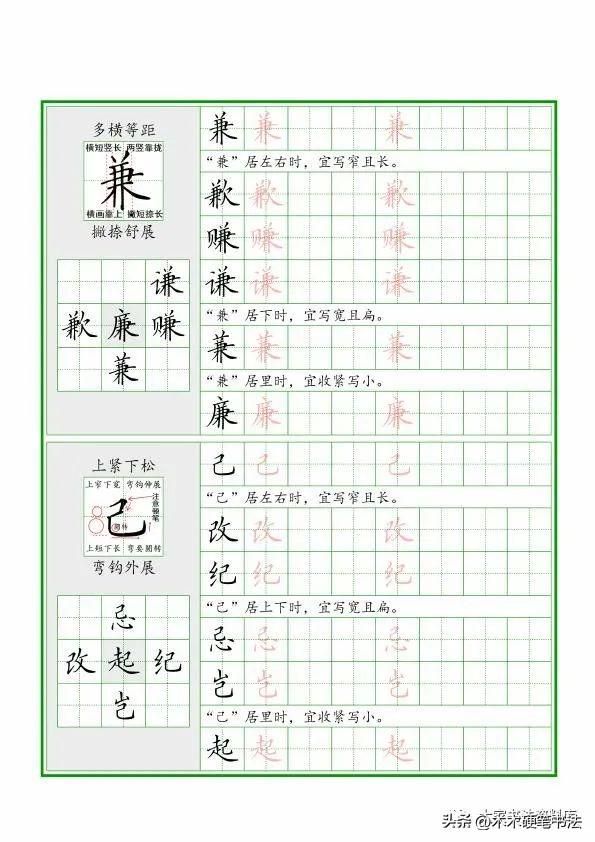 多横等距
横短竖长 两竖靠拢
兼
横画靠上 撇短捺长
撇捺舒展
谦
歉 廉 赚
蒹
兼 兼 兼
“兼”居左右时，宜写窄且长。
歉 歉 歉
赚 赚 赚
谦 谦 谦
“兼”居下时，宜写宽且扁。
蒹 蒹 蒹
“兼”居里时，宜收紧写小。
廉 廉 廉
上紧下松
上窄下宽 弯钩伸展
己
注意顿笔
圆转
上短下长 弯要圆转
弯钩外展
忌
改 起 纪
岂
己 己 己
“己”居左右时，宜写窄且长。
改 改 改
纪 纪 纪
“己”居上下时，宜写宽且扁。
忌 忌 忌
岂 岂 岂
“己”居里时，宜收紧写小。
起 起 起
头条 @木木硬笔书法